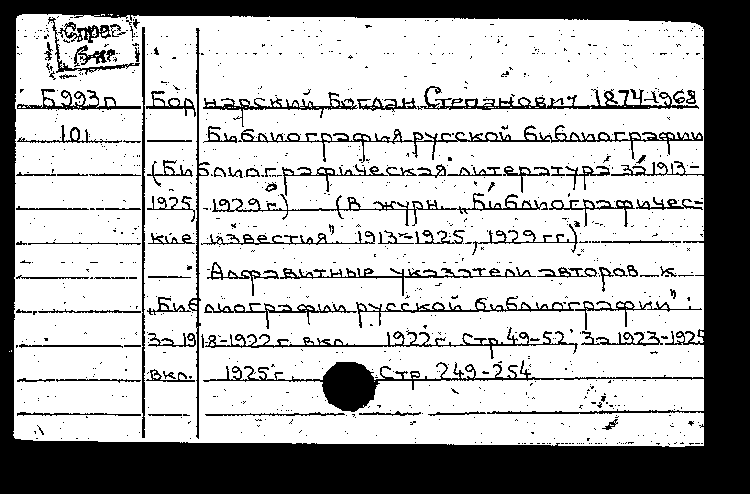 Справ
б-ка
Б993п Боднарский, Богдан Степанович 1874-1968
101 Библиография русской библиографии
(Библиографическая литература за 1913-
1925, 1929 г.) (В журн. „Библиографичес-
кие известия". 1913-1925, 1929 гг.)
Алфавитные указатели авторов к
„Библиографии русской библиографии":
За 1918-1922 г. вкл. 1922 г. Стр. 49-52; За 1923-1925
вкл. 1925 г. Стр. 249-254